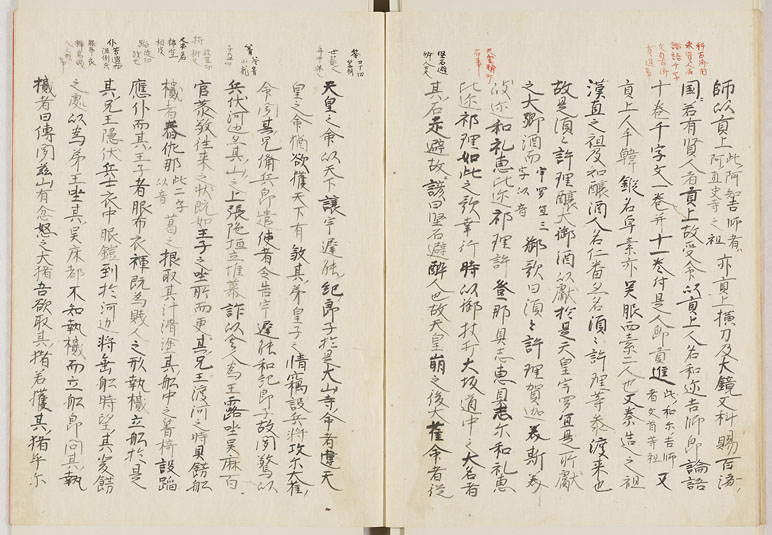 師以貢上此阿知吉師者阿直史等之祖亦貢上横刀及大鏡又科賜百済
国若有賢人者貢上故受命以貢上人名和迩吉師即論語
十巻千字文一巻并十一巻付是人即貢進此和尓吉師者文首等祖又
貢上人手韓鍛名卓素亦呉服西素二人也又秦造之祖
漢直之祖及知醸酒人名仁番又名須〻許理等参渡来也
故是須〻許理醸大御酒以献於是天皇宇羅宜是所献
之大御酒而宇羅宜三字以音御歌曰須〻許理賀迦美斯美
岐迩和礼恵比迩祁理許登那具志恵具志尓和礼恵
比迩祁理如此之歌幸行時以御杖打大坂道中之大石者
其石走避故諺曰堅石避酔人也故天皇崩之後大雀命者従
天皇之命以天下譲宇遅能紀郎子於是大山守命者違天
皇之命猶欲獲天下有殺其弟皇子之情竊設兵将攻尓大雀
命聞其兄備兵即遣使者令告宇遅能和紀郎子故聞驚以
兵伏河辺亦其山之上張絁垣立帷幕詐以舎人為王露坐呉床百
官恭敬往来之状既如王子之坐所而更其兄王渡河之時具餝船
檝者舂佐那此二字以音葛之根取其汁滑塗其船中之簀椅設蹈
應仆而其王子者服布衣褌既為賎人之形執檝立船於是
其兄王隠伏兵士衣中服鎧到於河辺将乗船時望其厳餝
之處以為弟王坐其呉床都不知執檝而立船即問其執
檝者曰傳聞玆山有忿怒之大猪吾欲取其猪若獲其猪乎尓